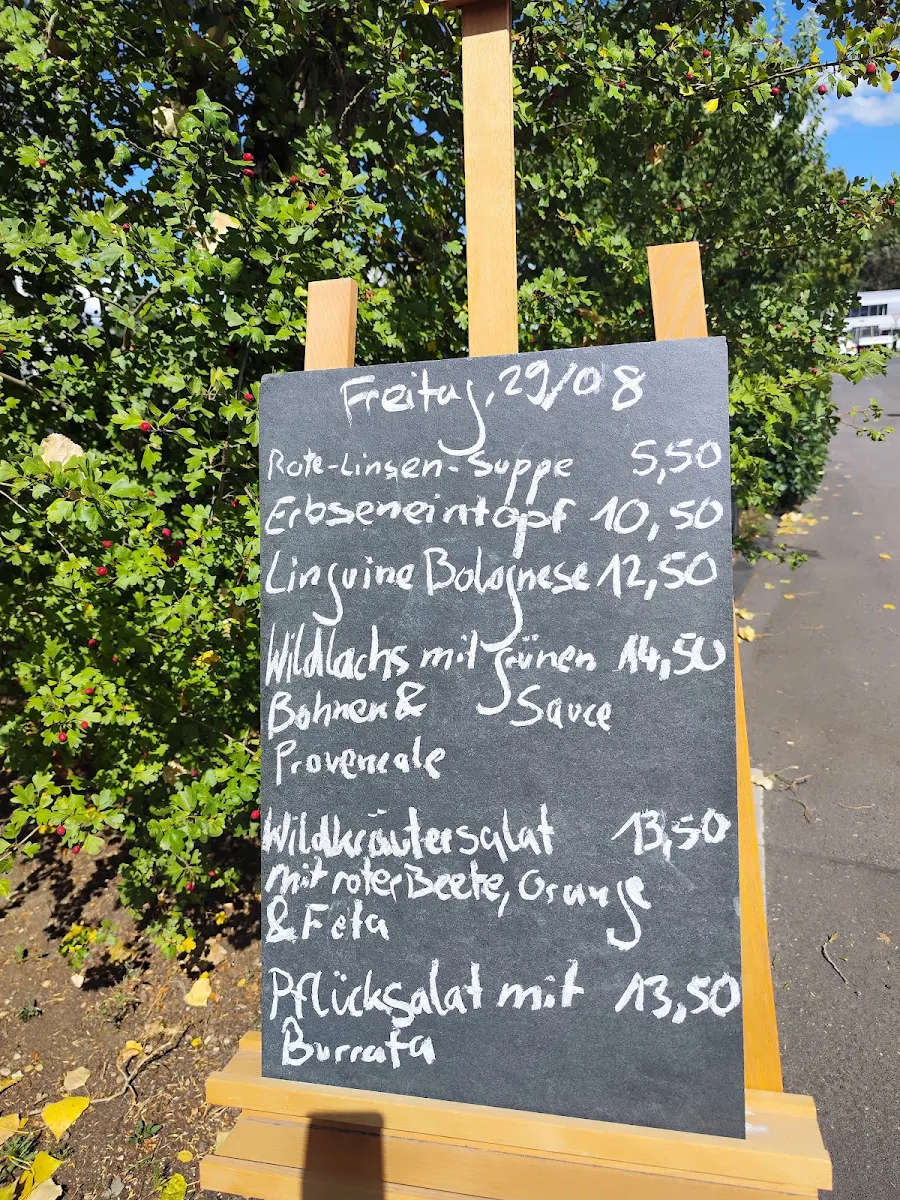 Freitag, 29/08
Rote-Linsen-Suppe 5,50
Erbseneintopf 10,50
Linguine Bolognese 12,50
Wildlachs mit grünen 14,50
Bohnen & Sauce
Provencale
Wildkräutersalat 13,50
mit roter Beete, Orange
& Feta
Pflücksalat mit 13,50
Burrata